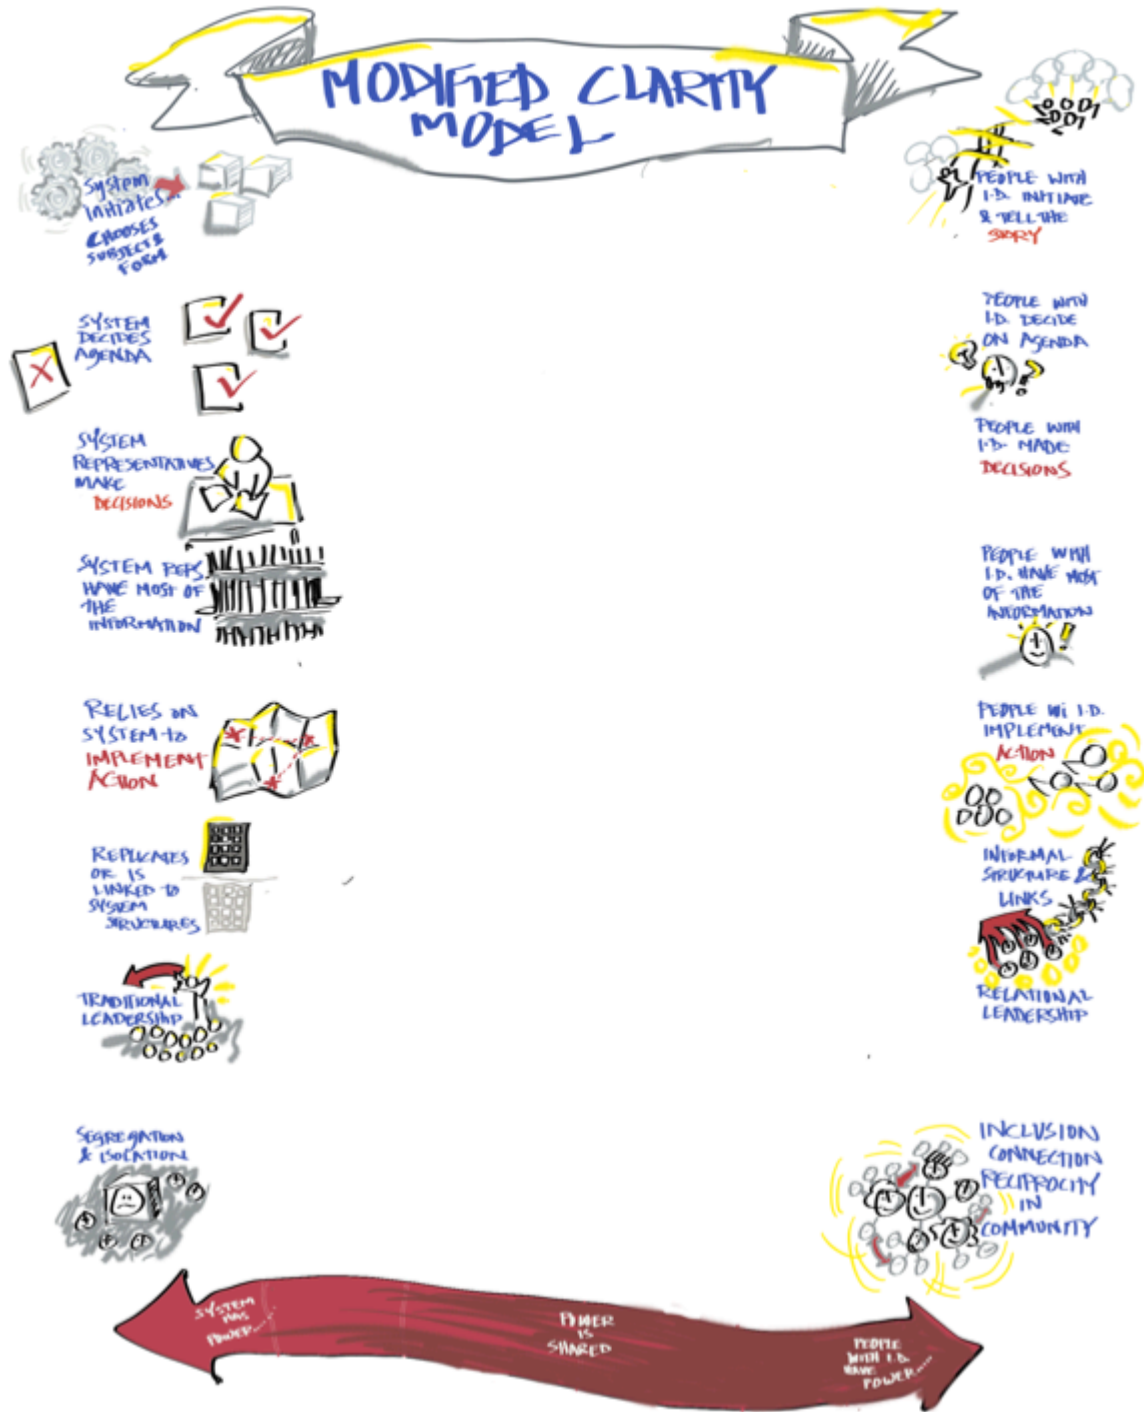 MODIFIED CLARITY
MODEL
System
initiates..
CHOOSES
SUBJECT &
FORM
SYSTEM
DECIDES
AGENDA
SYSTEM
REPRESENTATIVES
MAKE
DECISIONS
SYSTEM REPS
HAVE MOST OF
THE
INFORMATION
RELIES ON
SYSTEM to
IMPLEMENT
ACTION
REPLICATES
OR IS
LINKED to
SYSTEM
STRUCTURES
TRADITIONAL
LEADERSHIP
SEGREGATION
& ISOLATION
PEOPLE WITH
I.D. INITIATE
& TELL THE
STORY
PEOPLE WITH
I.D. DECIDE
ON AGENDA
PEOPLE WITH
I.D. MADE
DECISIONS
PEOPLE WITH
I.D. HAVE MOST
OF THE
INFORMATION
PEOPLE Wi I.D.
IMPLEMENT
ACTION
INFORMAL
STRUCTURE &
LINKS
RELATIONAL
LEADERSHIP
INCLUSION
CONNECTION
RECIPROCITY
IN
COMMUNITY
SYSTEM
HAS
POWER.....
POWER
IS
SHARED
PEOPLE
WITH I.D.
HAVE
POWER.....